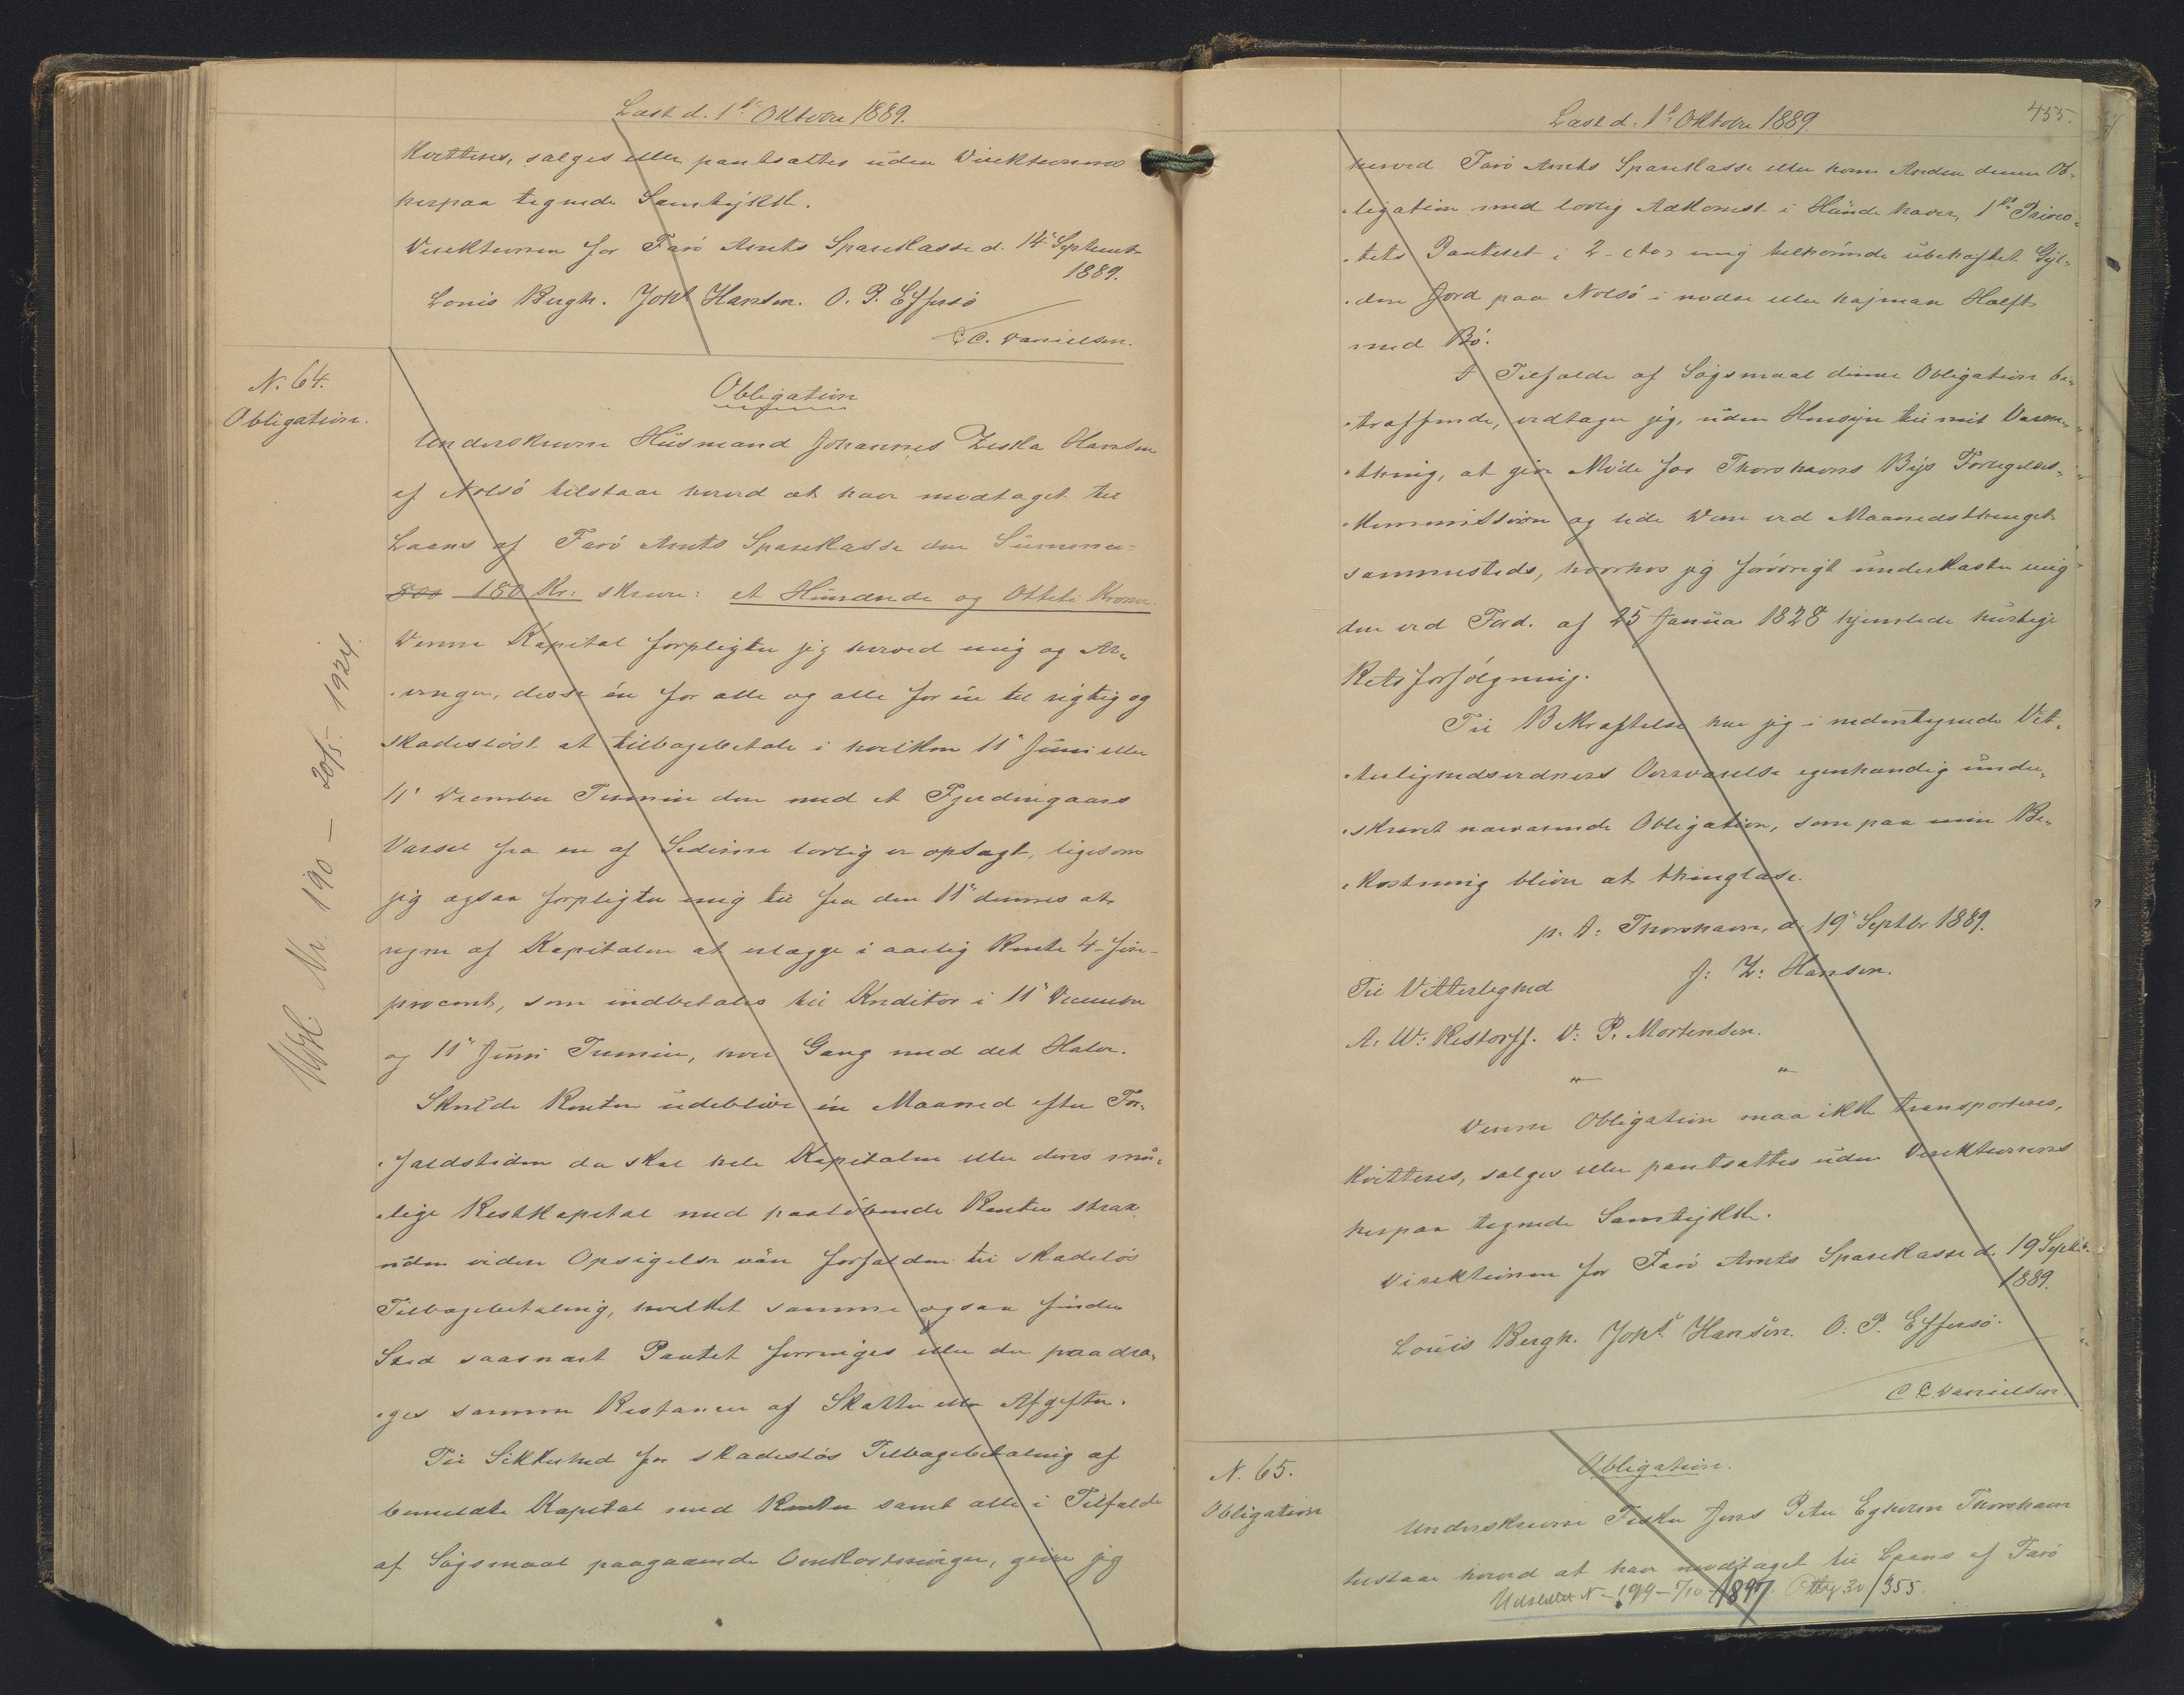 Læst d. 1ste Oktober 1889.
kvitteres, sælges eller pantsættes uden Direktionens
herpaa tegnede Samtykke.
Direktionen for Færø Amts Sparekasse d. 14de Septemb
1889.
Louis Bergh. Johs Hansen. O. P. Effersö
C. C. Danielsen.
N. 64.
Obligation.
Obligation
Underskrevne Husmand Johannes Zeska Hansen
af Nolsö tilstaar herved at have modtaget til
Laans af Færö Amts Sparekasse den Summa
800 180 Kr: skriver: et Hundrede og Otteti Kroner.
Denne Kapital forpligter jeg herved mig og Ar„
„vinger, disse én for alle og alle for én til rigtig og
skadeslöst at tilbagebetale i hvilken 11te Juni eller
11te December Termin den med et Fjerdingaars
Varsel fra en af Siderne lovlig er opsagt, ligesom
jeg ogsaa forpligter mig til fra den 11te dennes at
regne af Kapitalen at erlægge i aarlig Rente 4-fire-
procent, som indbetales til Kreditor i 11te December
og 11te Juni Termin, hver Gang med det Halve.
Skulde Renten udeblive én Maaned efter For„
„faldstiden da skal hele Kapitalen eller dens mu„
„lige Restkapital med paalöbende Renter strax
uden viden Opsigelse være forfalden til skadelös
Tilbagebetaling, hvilket samme ogsaa finder
Sted saasnart Pantet forringes eller der paadra„
„ges samme Restancer af Skatter eller Afgifter.
Til Sikkerhed for skadeslös Tilbagebetaling af
bemeldte Kapital med Renter samt alle i Tilfælde
af Sögsmaal paagaaende Omkostninger, giver jeg
Udsl. Nr. 190 — 20/5 1924.
Læst d. 1ste Oktober 1889.
455.
herved Færö Amts Sparekasse eller hvem Anden denne Ob„
„ligation med lovlig Adkomst i Hænde haver, 1ste Priori„
„tets Panteret i 2-to mig tilhörende ubehæftet Gyl„
„den Jord paa Nolsö i nordre eller hajman Hælft
med Bö.
I Tilfælde af Sögsmaal denne Obligation be„
„træffende, vedtager jeg, uden Hensyn til mit Værne„
„thing, at give Möde for Thorshavns Byes Forligelses„
„kommission og lide Dom ved Maanedsthinget
sammesteds, hvorhos jeg forövrigt underkaster mig
den ved Ford. af 25 Januar 1828 hjemlede hurtige
Retsforfölgning.
Til Bekræftelse har jeg i medentegnede Vit„
„terlighedsvidners Overværelse egenhændig under„
„skrevet nærværende Obligation, som paa min Be„
„kostning bliver at thinglæse.
p. t: Thorshavn, d. 19de Septbr 1889.
J: Z: Hansen.
Til Vitterlighed
A. W: Restorff. D: P. Mortensen.
„ „
Denne Obligation maa ikke transporteres,
kvitteres, sælges eller pantsættes uden Direktionens
herpaa tegnede Samtykke.
Direktionen for Færö Amts Sparekasse d. 19 Septb.
1889.
Louis Bergh. Johs Hansen. O. P. Effersö.
C. C. Danielsen.
N. 65.
Obligation
Obligation.
Underskrevne Fisker Jens Peter Egholm Thorshavn
tilstaar herved at have modtaget til Laans af Færö
Udslettet N- 199- 5/10 1897 30/355